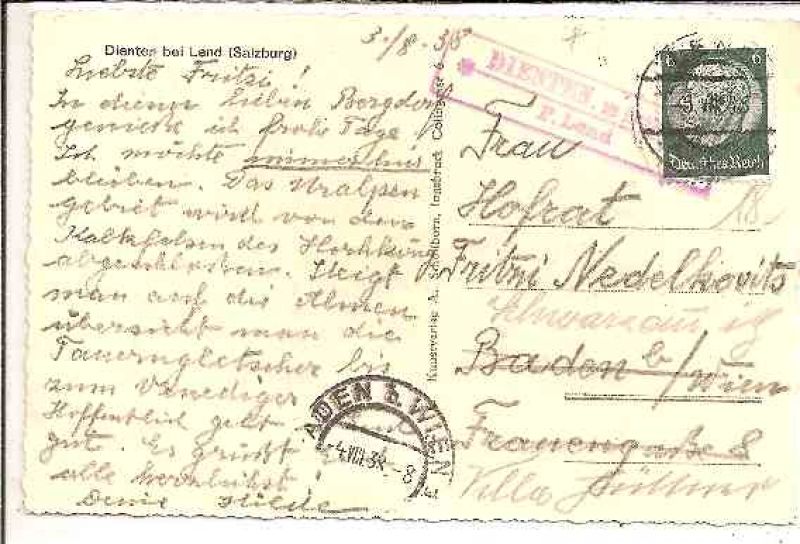 Dienten bei Lend (Salzburg)
3./8. 38
Liebste Fritzi!
In diesem lieben Bergdorf
genieße ich frohe Tage!
Ich möchte immer hier
bleiben. Das Uralpen
gebiet wird von den
Kalkfelsen des Hochkönig
abgeschlossen. Steigt
man auf die Almen
übersieht man die
Tauerngletscher bis
zum Venediger
Hoffentlich geht
gut. Es grüßt
alle herzlichst!
Deine Hilde
Kunstverlag A. Innsbruck
DIENTEN
P. Lend
6
Deutsches Reich
Frau
Hofrat
Fritzi Nedelkovits
Schwarzau i/
Baden b/Wien
Frauengasse 8
Villa
BADEN b. WIEN
-4.VIII.38.-8